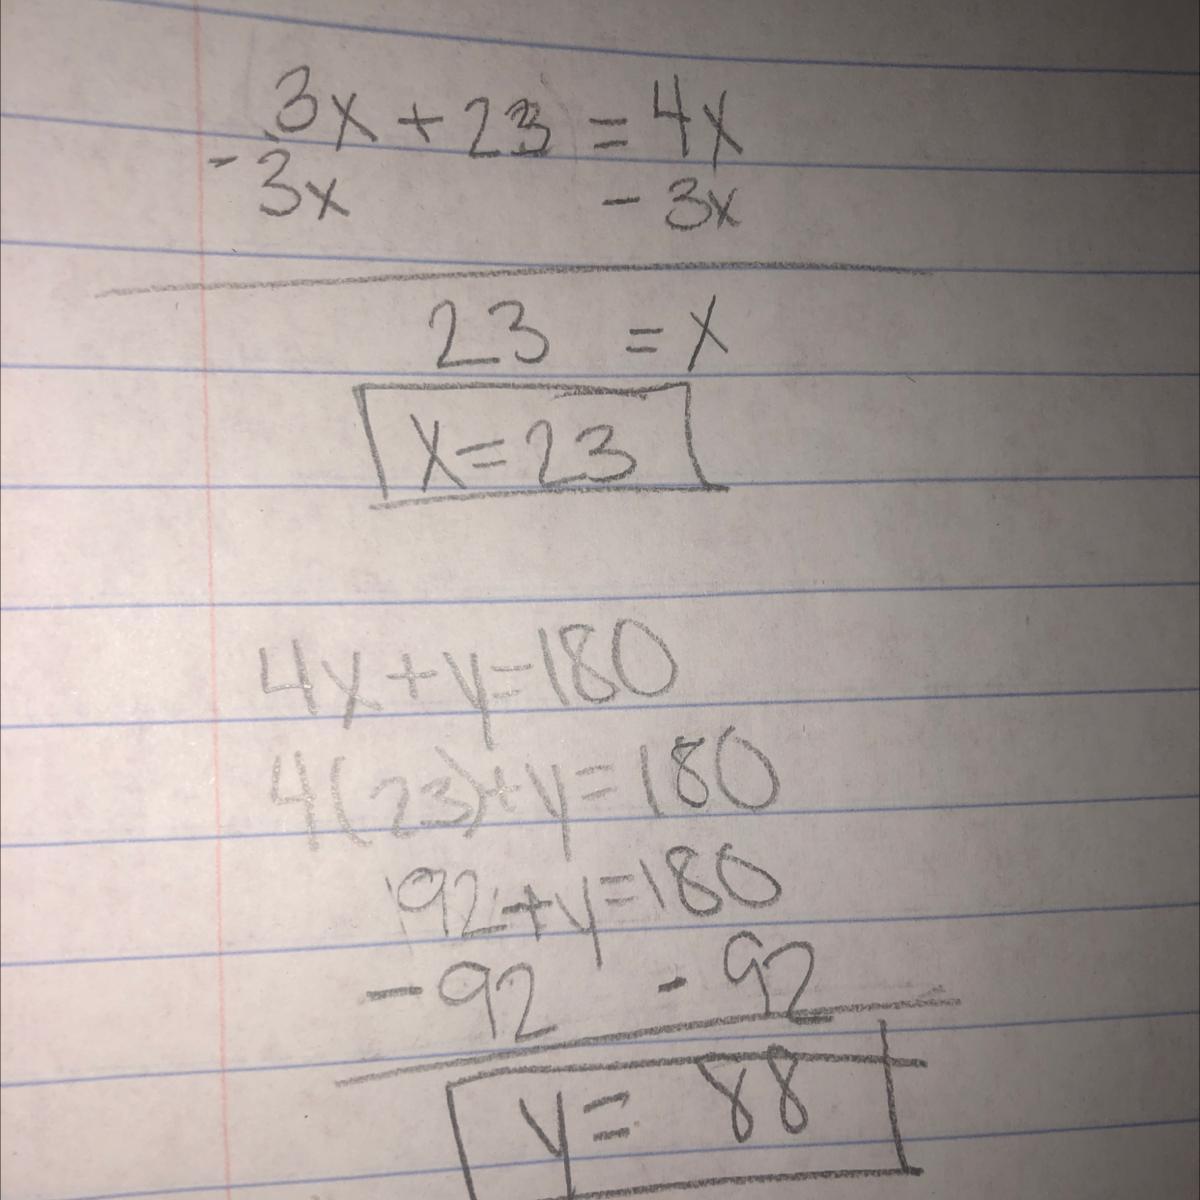 3x + 23 = 4x
- 3x - 3x
23 = x
x = 23
4x + y = 180
4(23) + y = 180
92 + y = 180
- 92 - 92
y = 88